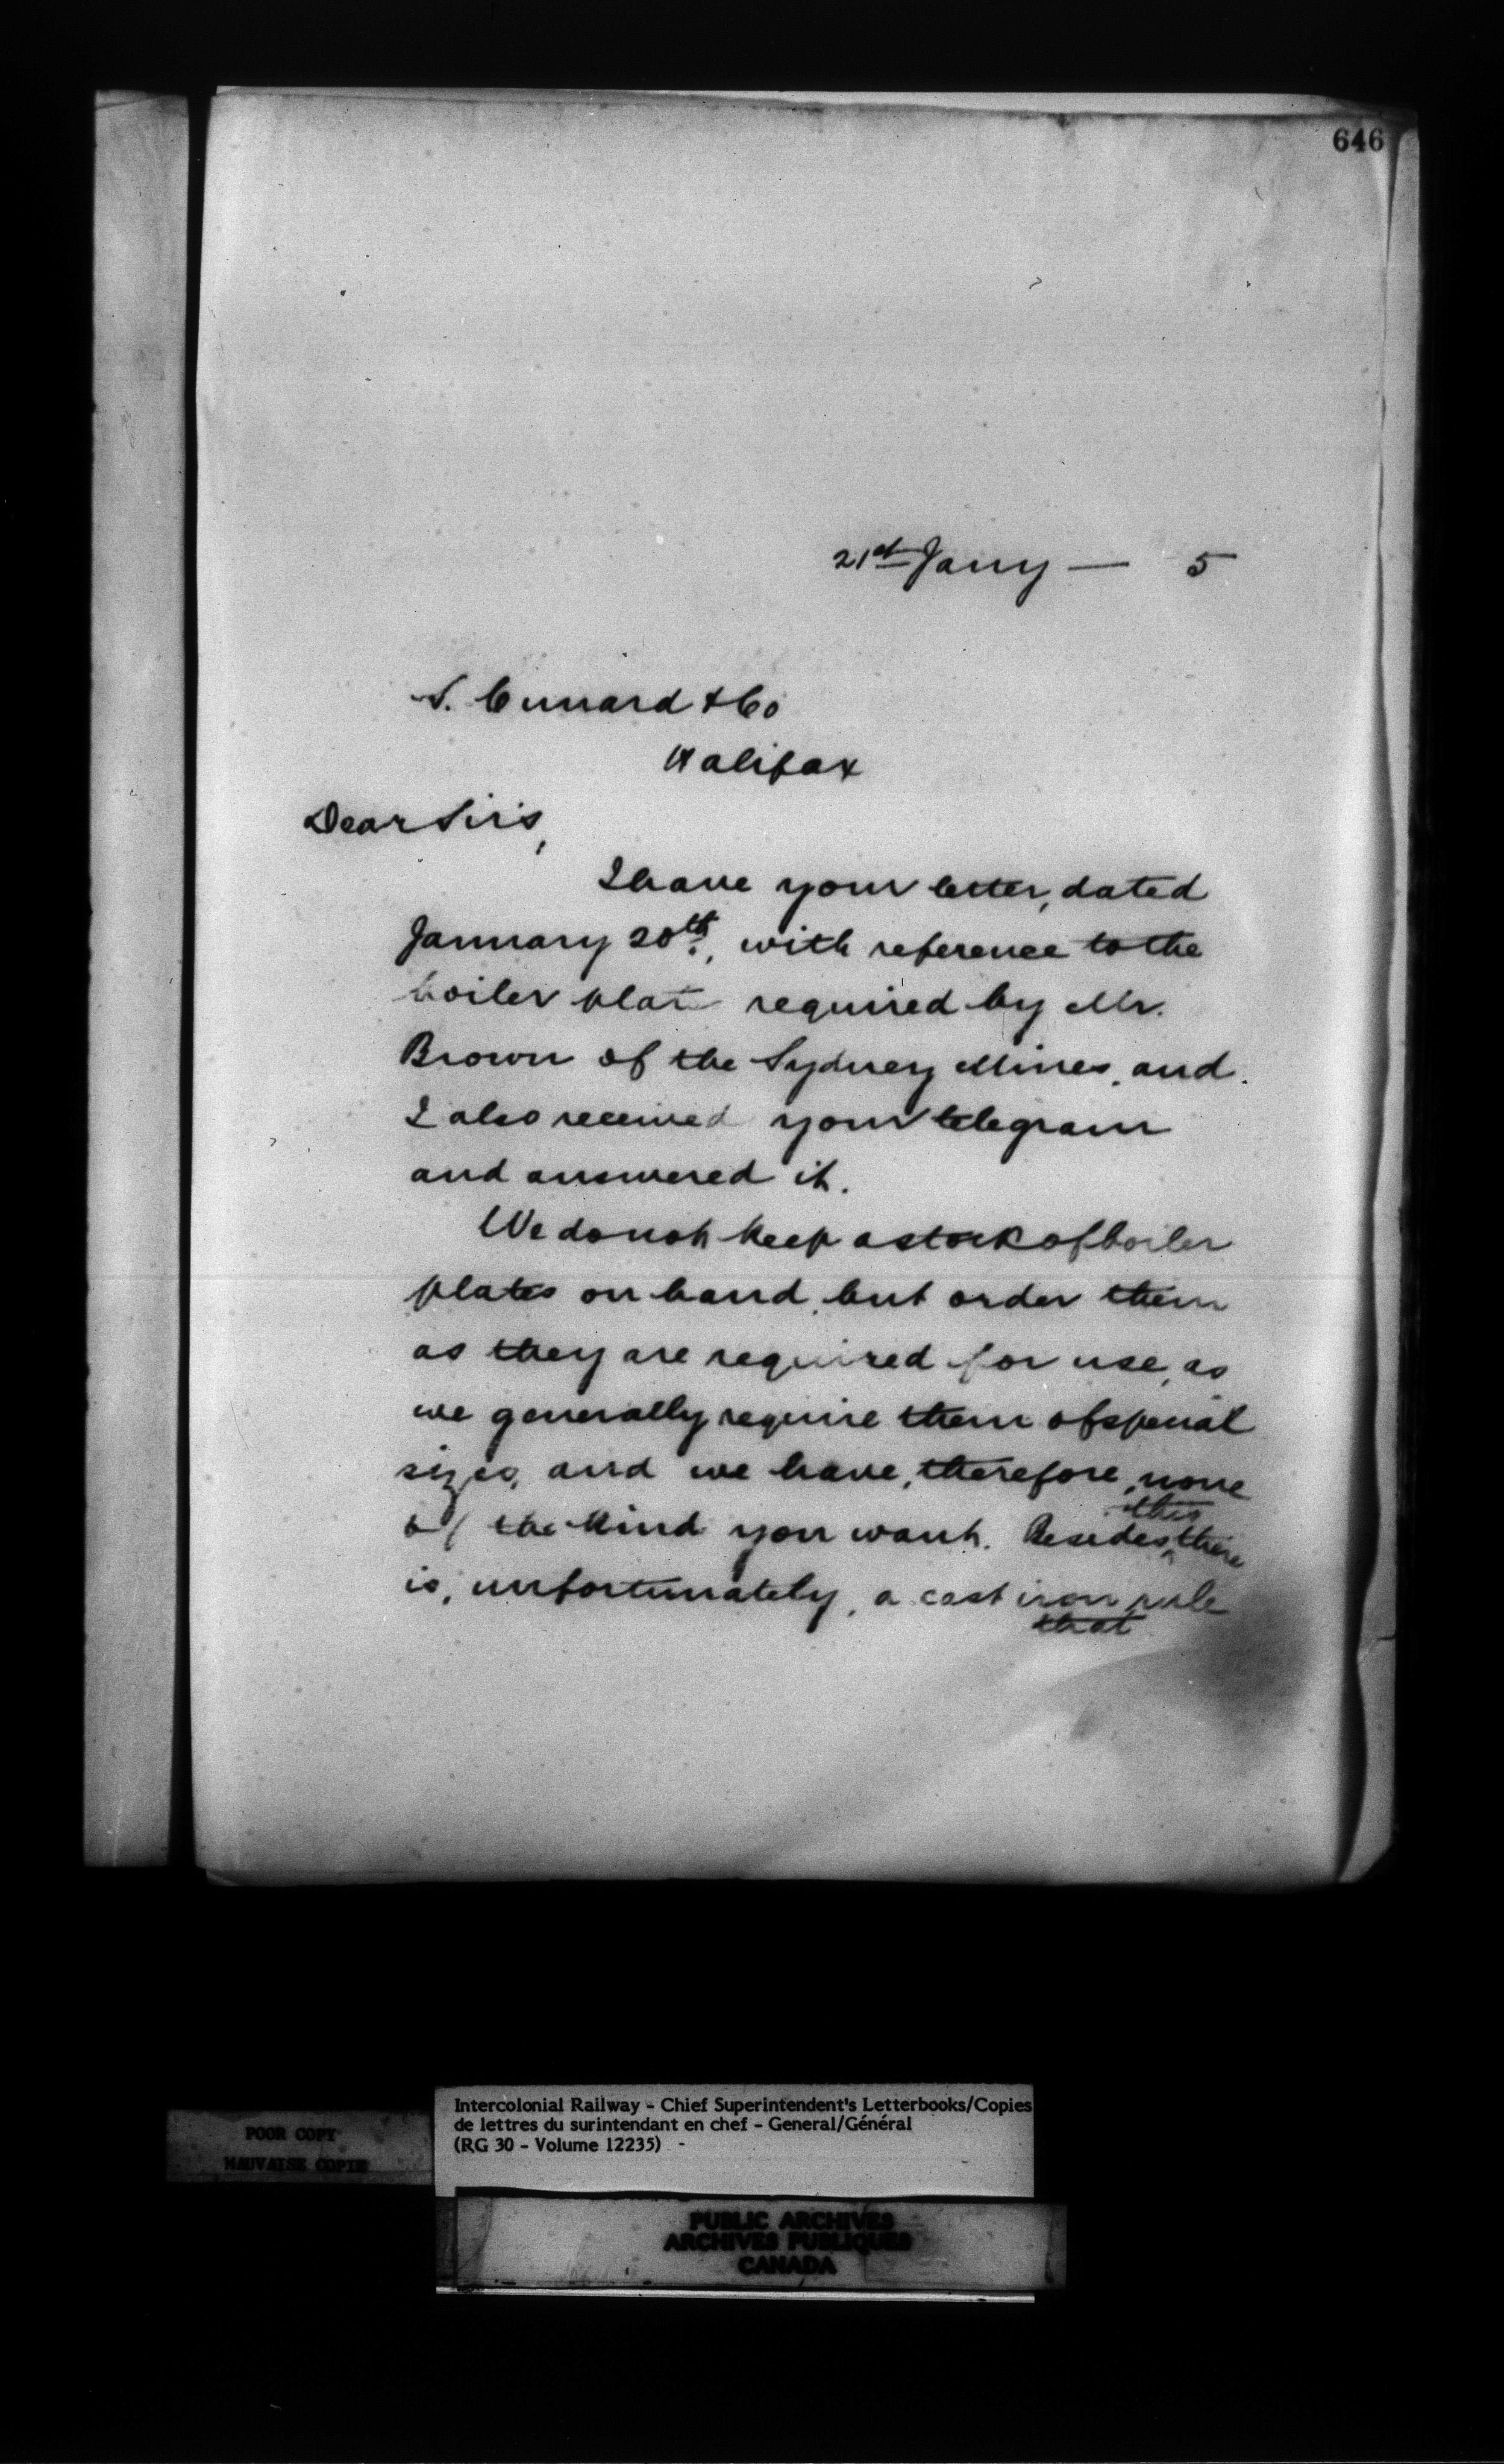 646
21st Jany — 5
S. Cunard & Co
Halifax
Dear Sirs,
I have your letter, dated
January 20th, with reference to the
boiler plate required by Mr.
Brown of the Sydney Mines, and
I also received your telegram
and answered it.
We do not keep a stock of boiler
plates on hand, but order them
as they are required for use, as
we generally require them of special
sizes, and we have, therefore, none
this
of the kind you want. Besides ^ there
is, unfortunately, a cast iron rule
that
Intercolonial Railway - Chief Superintendent's Letterbooks/Copies
de lettres du surintendant en chef - General/Général
(RG 30 - Volume 12235) -
POOR COPY
MAUVAISE COPIE
PUBLIC ARCHIVES
ARCHIVES PUBLIQUES
CANADA